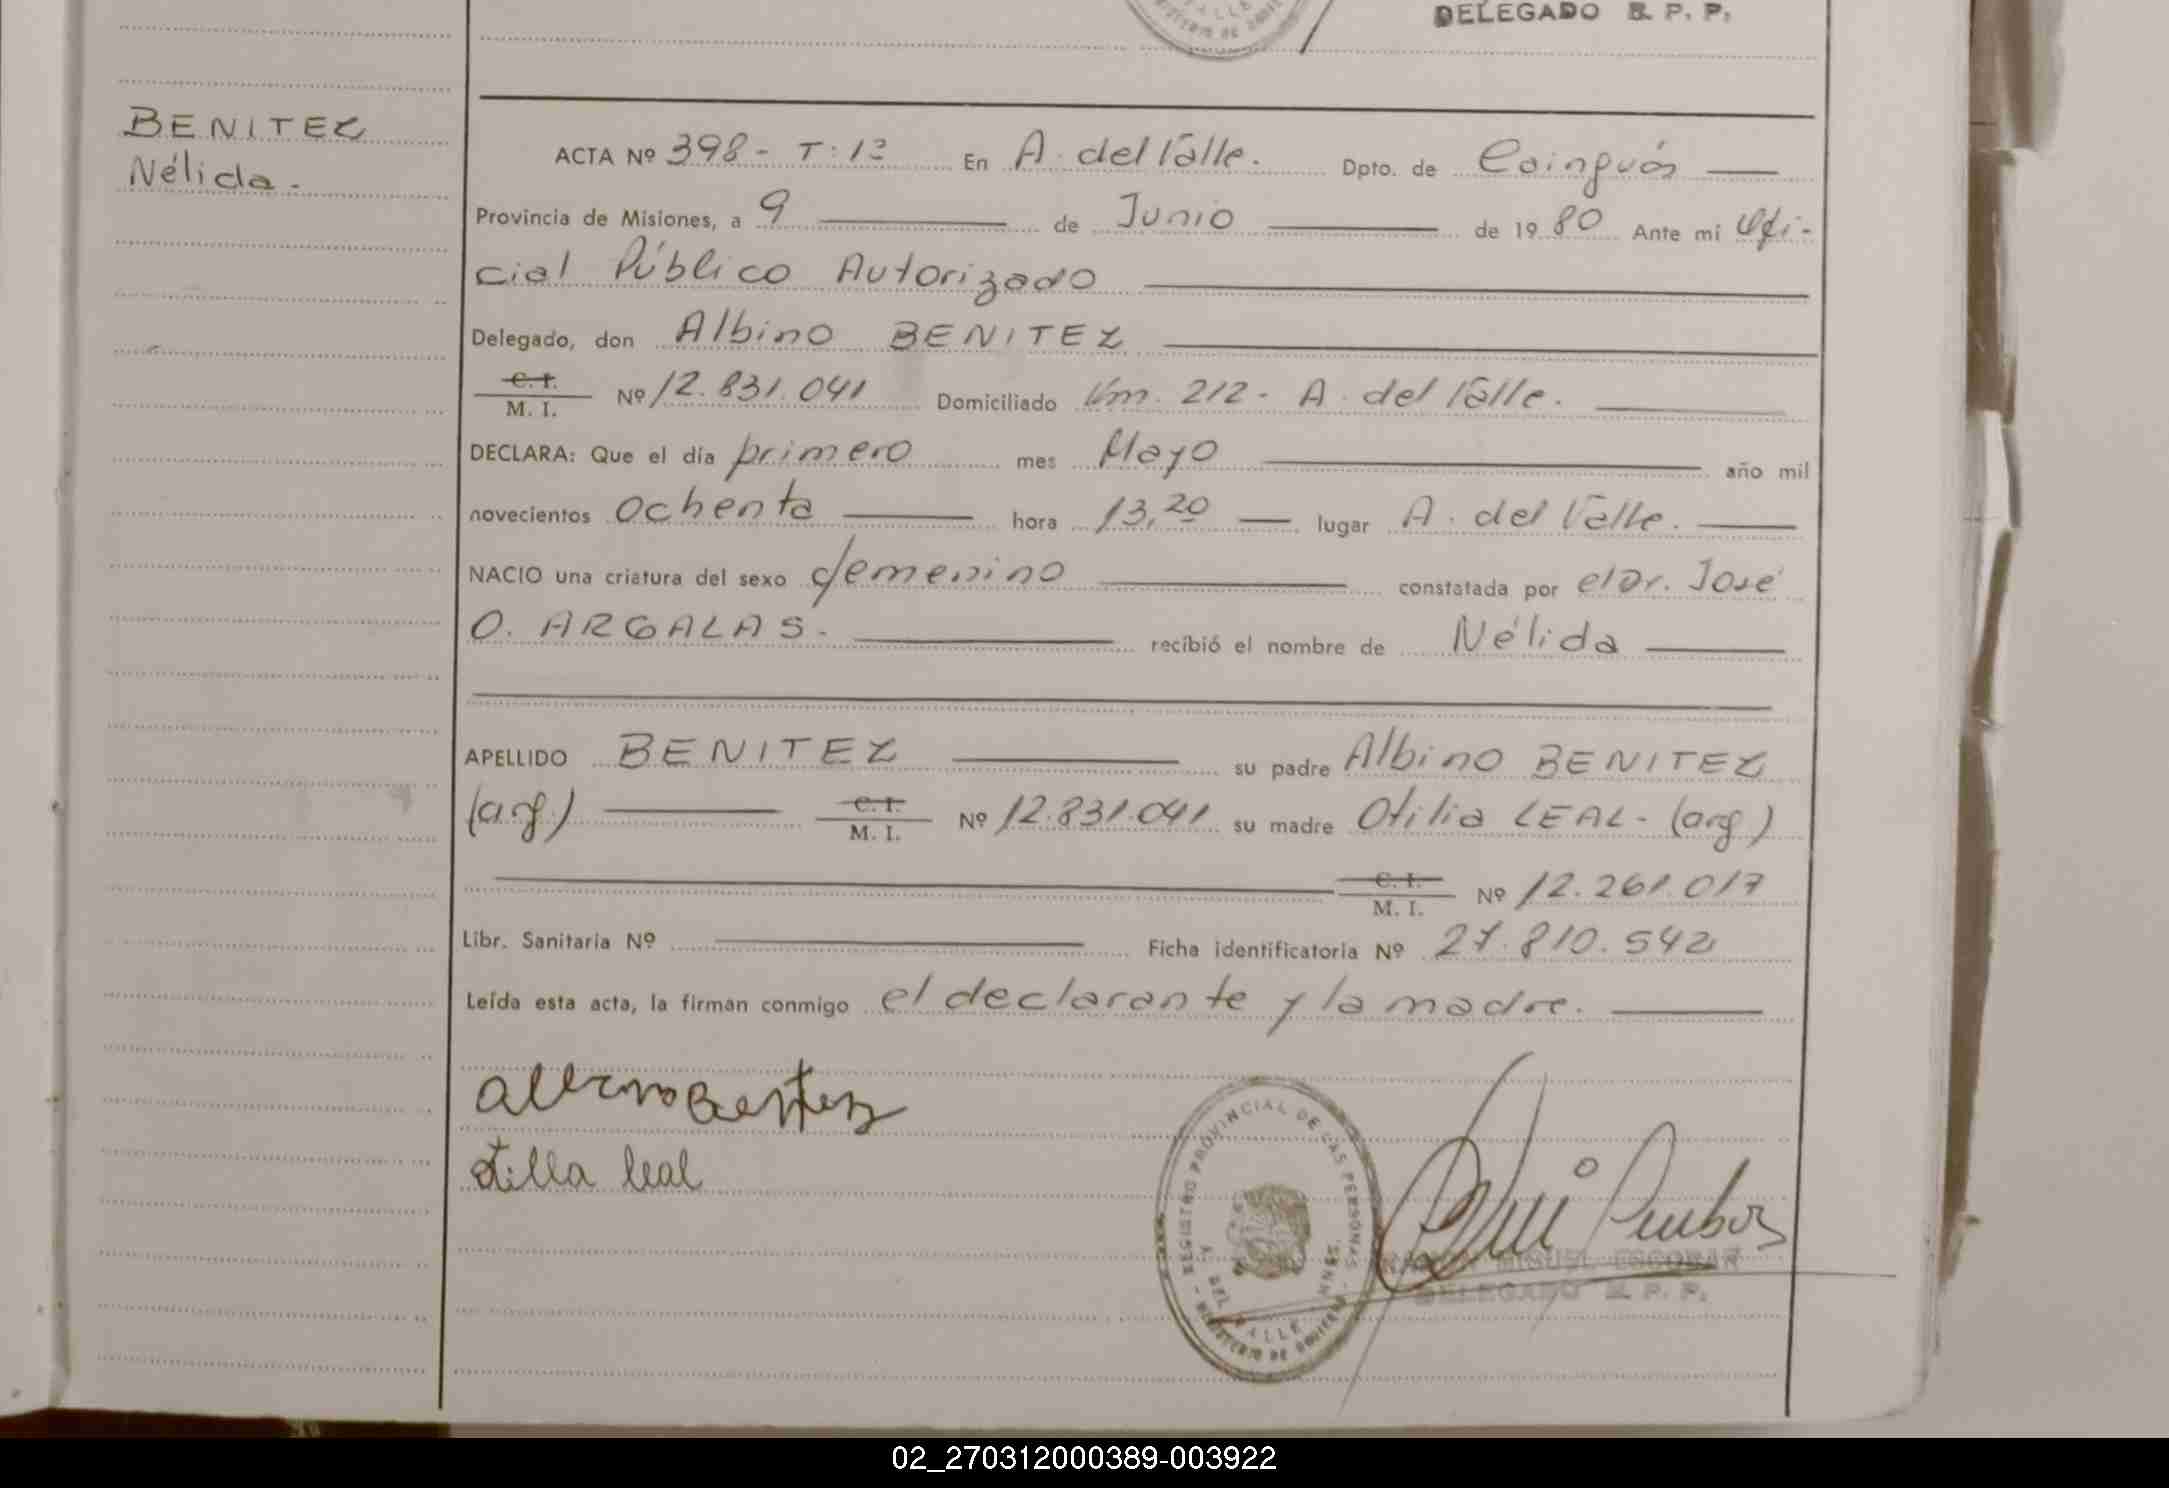 DELEGADO R. P. P.
BENITEZ
Nélida.-
ACTA Nº 398 - T: 1º En A. del Valle. Dpto. de Cainguás
Provincia de Misiones, a 9 de Junio de 1980 Ante mi Ofi-
cial Público Autorizado
Delegado, don Albino BENITEZ
C. I.
M. I. Nº 12.831.041 Domiciliado Km. 212 - A. del Valle.
DECLARA: Que el día primero mes Mayo año mil
novecientos ochenta hora 13,20 lugar A. del Valle.
NACIO una criatura del sexo femenino constatada por el Dr. José
O. ARGALAS.- recibió el nombre de Nélida
APELLIDO BENITEZ su padre Albino BENITEZ
(arg) C. I. M. I. Nº 12.831.041 su madre Otilia LEAL - (arg)
C. I. M. I. Nº 12.261.017
Libr. Sanitaria Nº Ficha identificatoria Nº 27.810.542
Leída esta acta, la firman conmigo el declarante y la madre.
REGISTRO PROVINCIAL DE LAS PERSONAS
A. DEL VALLE MNES.
MINISTERIO DE GOBIERNO
otilla leal
MIGUEL ESCOBAR
DELEGADO R. P. P.
02_270312000389-003922